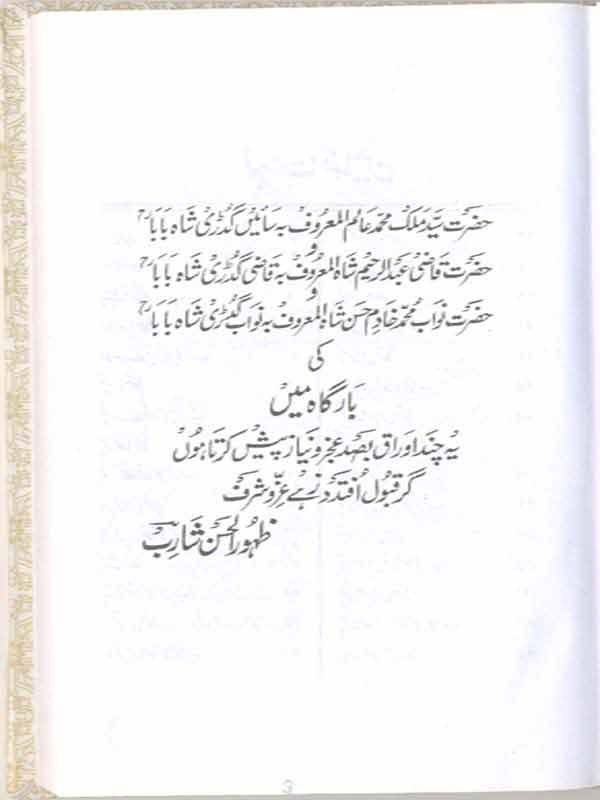 حضرت سیّد ملک محمّد عالم المعروف بہ سائیں گدڑی شاہ بابا رح
و
حضرت قاضی عبدالرحیم شاہ المعروف بہ قاضی گدڑی شاہ بابا رح
و
حضرت نواب محمّد خادم حسن شاہ المعروف بہ نواب گدڑی شاہ بابا رح
کی
بارگاہ میں
یہ چند اوراق بصد عجز و نیاز پیش کرتا ہوں
گر قبول اُفتد زہے عزّ و شرف
ظہور الحسن شارب
3